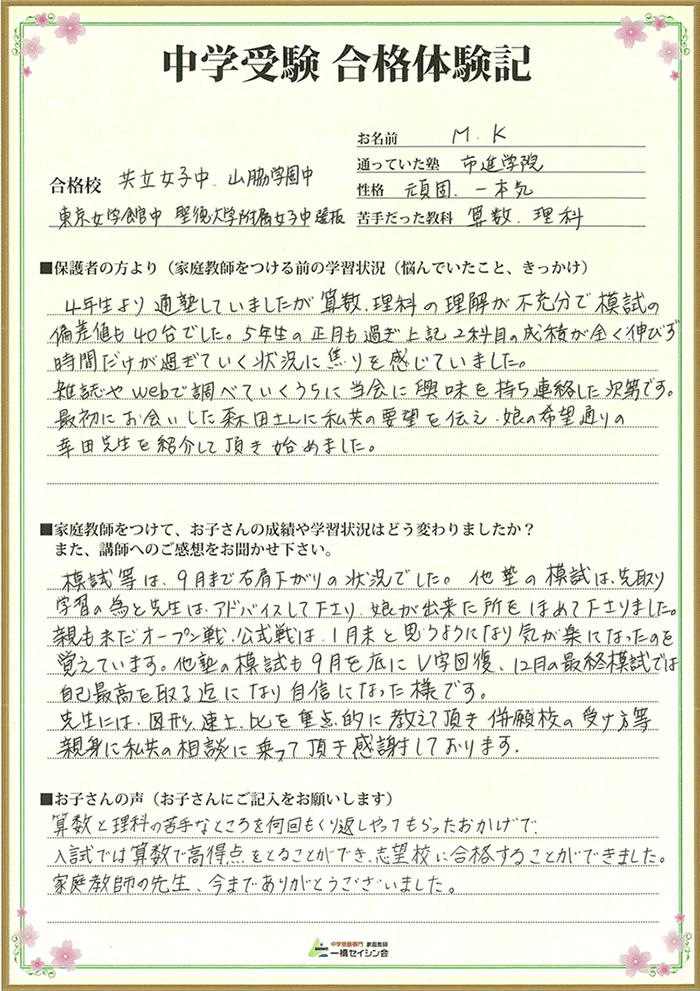 中学受験 合格体験記
お名前 M.K
通っていた塾 市進学院
合格校 共立女子中、山脇学園中
性格 頑固、一本気
東京女学館中 聖徳大学附属女子中選抜
苦手だった教科 算数、理科
■保護者の方より(家庭教師をつける前の学習状況(悩んでいたこと、きっかけ)
4年生より通塾していましたが算数、理科の理解が不充分で模試の
偏差値も40台でした。5年生の正月も過ぎ上記2科目の成績が全く伸びず
時間だけが過ぎていく状況に焦りを感じていました。
雑誌やWebで調べていくうちに当会に興味を持ち連絡した次第です。
最初にお会いした森田さんに私共の要望を伝え、娘の希望通りの
幸田先生を紹介して頂き始めました。
■家庭教師をつけて、お子さんの成績や学習状況はどう変わりましたか?
また、講師へのご感想をお聞かせ下さい。
模試等は、9月まで右肩下がりの状況でした。他塾の模試は、先取り
学習の為と先生は、アドバイスして下さり、娘が出来た所をほめて下さりました。
親も未だオープン戦、公式戦は、1月末と思うようになり気が楽になったのを
覚えています。他塾の模試も9月を底にV字回復、12月の最終模試では
自己最高を取る迄になり自信になった様です。
先生には、図形、速さ、比を重点的に教えて頂き併願校の受け方等
親身に私共の相談に乗って頂き感謝しております.
■お子さんの声(お子さんにご記入をお願いします)
算数と理科の苦手なところを何回もくり返しやってもらったおかげで、
入試では算数で高得点をとることができ、志望校に合格することができました。
家庭教師の先生、今までありがとうございました。
中学受験専門 家庭教師
一橋セイシン会